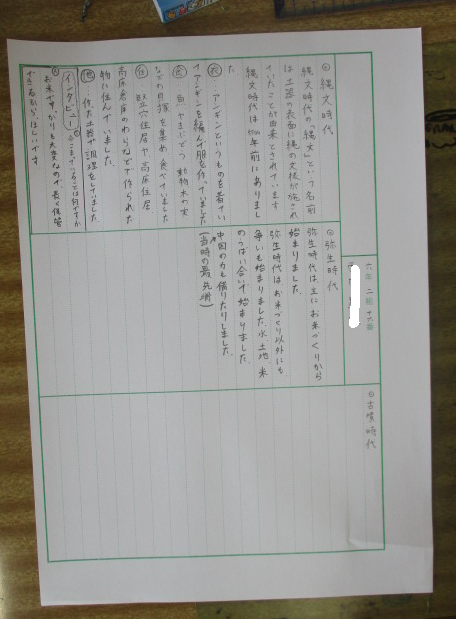 六年 二組 十六番
◎縄文時代
縄文時代の「縄文」という名前
は土器の表面に縄の文様が施され
ていたことが由来とされています
縄文時代は 年前にありまし
た
衣…アンギンというものを着てい
て アンギンを編んで服を作っていました
食 魚やまいどつ 動物木の実
などの貝塚を集め食べていました
住 竪穴住居や高床住居
高床倉庫のわらなどで作られた
物に住んでいました。
他…作た土器で調理をしていました。
インタビュー Qここまでつることは何ですか
A お米ですかりも大変なので長く保管
できるからほしいです
◎弥生時代
弥生時代は主にお米づくりから
始まりました。
弥生時代はお米づくり以外にも
争いも始まりました水土地米
のうばい合いで始まりました。
中国の力も借りたりしました。
(当時の
◎古墳時代